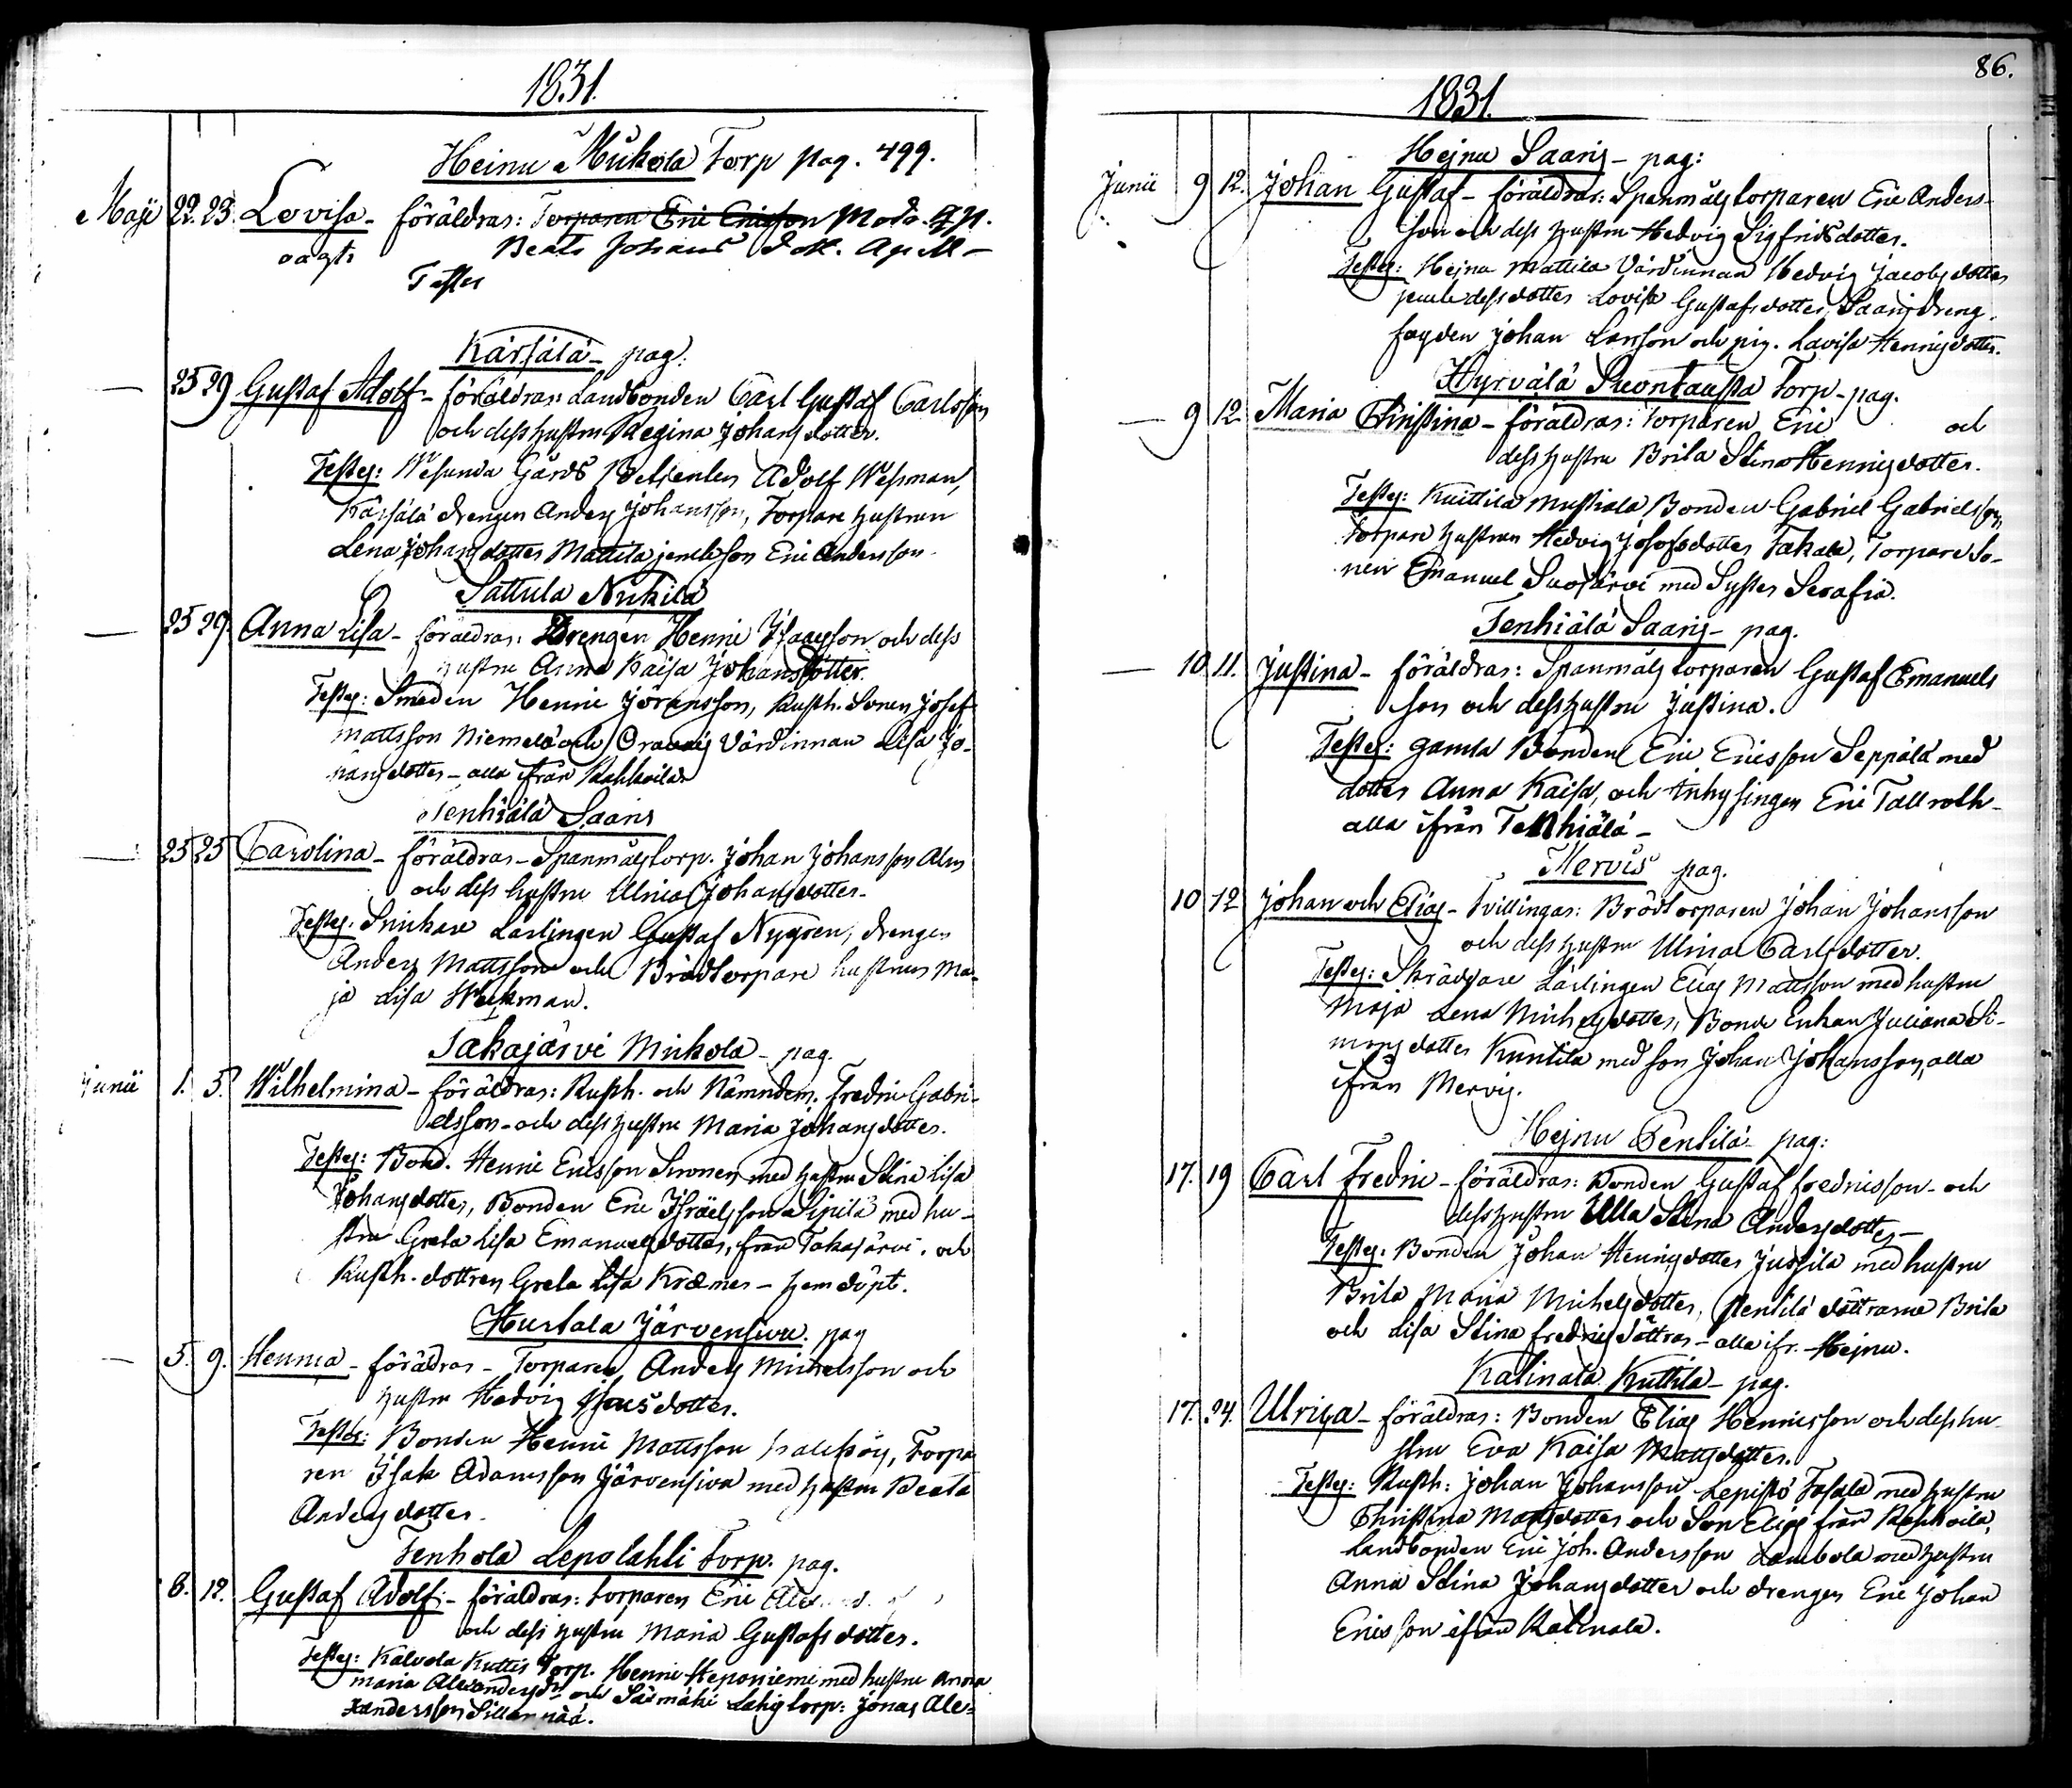 1831.
Heinu Mukola Torp pag. 499.
Maji 22. 23. Lovisa - föräldrar: Torparen Eric Ericsson Modr. Pig.
oägt: Beata Johans dott.
Testes
Kärsälä - pag:
25 29 Gustaf Adolf - föräldrar: Landbonden Carl Gustaf Carlsson
och dess hustru Regina Johansdotter.
Testes: Wesunda Gårds Betjenten Adolf Wesman,
Kärsälä drengen Anders Johansson, Torpare hustrun
Lena Johansdotter Mattila jemte son Eric Andersson.
Sattula Nickilä
25 29. Anna Lisa - föräldrar: Drengen Henric Isaacsson och dess
hustru Anna Kaisa Johansdotter.
Testes: Smeden Henric Jöransson, Rusth. Sonen Josef
Mattsson Niemelä och Oravais Värdinnan Lisa Jo-
hansdotter - alla ifrån Rahkoila
Tenhiälä Saaris
25 25 Carolina - föräldrar - Spanmålstorp. Johan Johansson Alm
och dess hustru Ulrica Johansdotter.
Testes: Snickare Lärlingen Gustaf Nygren, drengen
Anders Mattsson och Brödtorpare hustrun Ma-
ja Lisa Wekman.
Takajärvi Mickola - pag.
Junii 1. 5. Wilhelmina - föräldrar: Rusth. och Nämndem. Fredric Gabri-
elsson - och dess hustru Maria Johansdotter.
Testes: Bond. Henric Ericsson Simonen med hustru Stina Lisa
Johansdotter, Bonden Eric Isräelsson Sipilä med hu-
stru Greta Lisa Emanuelsdotter, från Takajärvi. och
Rusth. dottren Greta Lisa Kræmer - hemdöpt.
Hurtala Järvensivu. pag
5. 9. Henrica - föräldrar - Torparen Anders Michelsson och
hustru Hedvig Isacsdotter.
Testes: Bonden Henric Mattsson, Torpa
ren Isak Adamsson Järvensivu med hustru Beata
Andersdotter.
Tenhola Lepolahti Torp. pag.
6. 12. Gustaf Adolf - föräldrar: torparen Eric
och dess hustru Maria Gustafsdotter.
Testes: Kalvola Kuttis Torp. Henric Heponiemi med hustru Anna
Maria Alexandersdr. och Särmäki Lahis torp: Jonas Ale-
xandersson Sillanpää.
86.
1831.
Hejnu Saaris - pag:
Junii 9 12. Johan Gustaf - föräldrar: Spanmåls torparen Eric Anders-
son och dess hustru Hedvig Sigfridsdotter.
Testes: Hejnu Mattila Värdinnan Hedvig Jacobsdotter
jemte dess dotter Lovisa Gustafsdotter, Saaris dreng.
fogden Johan Larsson och pig. Lovisa Henricsdotter.
Hyrvälä Suontausta Torp - pag.
9 12. Maria Christina - föräldrar: Torparen Eric och
dess hustru Brita Stina Henricsdotter.
Testes: Kuittila Mustiala Bonden Gabriel Gabrielsson,
Torpare hustrun Hedvig Josefsdotter Takala, Torpare So-
nen Emanuel Suojärvi med Syster Serafia.
Tenhiälä Saaris - pag.
10 11. Justina - föräldrar: Spanmåls torparen Gustaf Emanuels
son och dess hustru Justina.
Testes: gamla Bonden Eric Ericsson Seppälä med
dotter Anna Kaisa, och Inhysingen Eric Tallroth -
alla ifrån Tenhiälä -
Mervis pag.
10 12 Johan och Elias - Tvillingar: Brödtorparen Johan Johansson
och dess hustru Ulrica Carlsdotter.
Testes: Skräddare Lärlingen Elias Mattsson med hustru
Maja Lena Michelsdotter, Bonde Enkan Juliana Si-
monsdotter Kuntila med son Johan Johansson, alla
ifrån Mervis.
Hejnu Pentilä pag:
17. 19 Carl Fredric - föräldrar: Bonden Gustaf Fredricsson - och
dess hustru Ulla Stina Andersdotter -
Testes: Bonden Johan Henricsdotter Jussila med hustru
Brita Maria Michelsdotter, Pentilä döttrarne Brita
och Lisa Stina Fredricsdöttrar - alla ifr. Hejnu.
Katinala Kuttila - pag.
17. 24. Ulrica - föräldrar: Bonden Elias Henricsson och dess hu-
stru Eva Kaisa Mattsdotter.
Testes: Rusth: Johan Johansson Lepistö Tasala med hustru
Christina Mattsdotter och Son Elias från Rahkoila,
Landbonden Eric Joh. Andersson Lambola med hustru
Anna Stina Johansdotter och drengen Eric Johan
Ericsson ifrån Katinala.